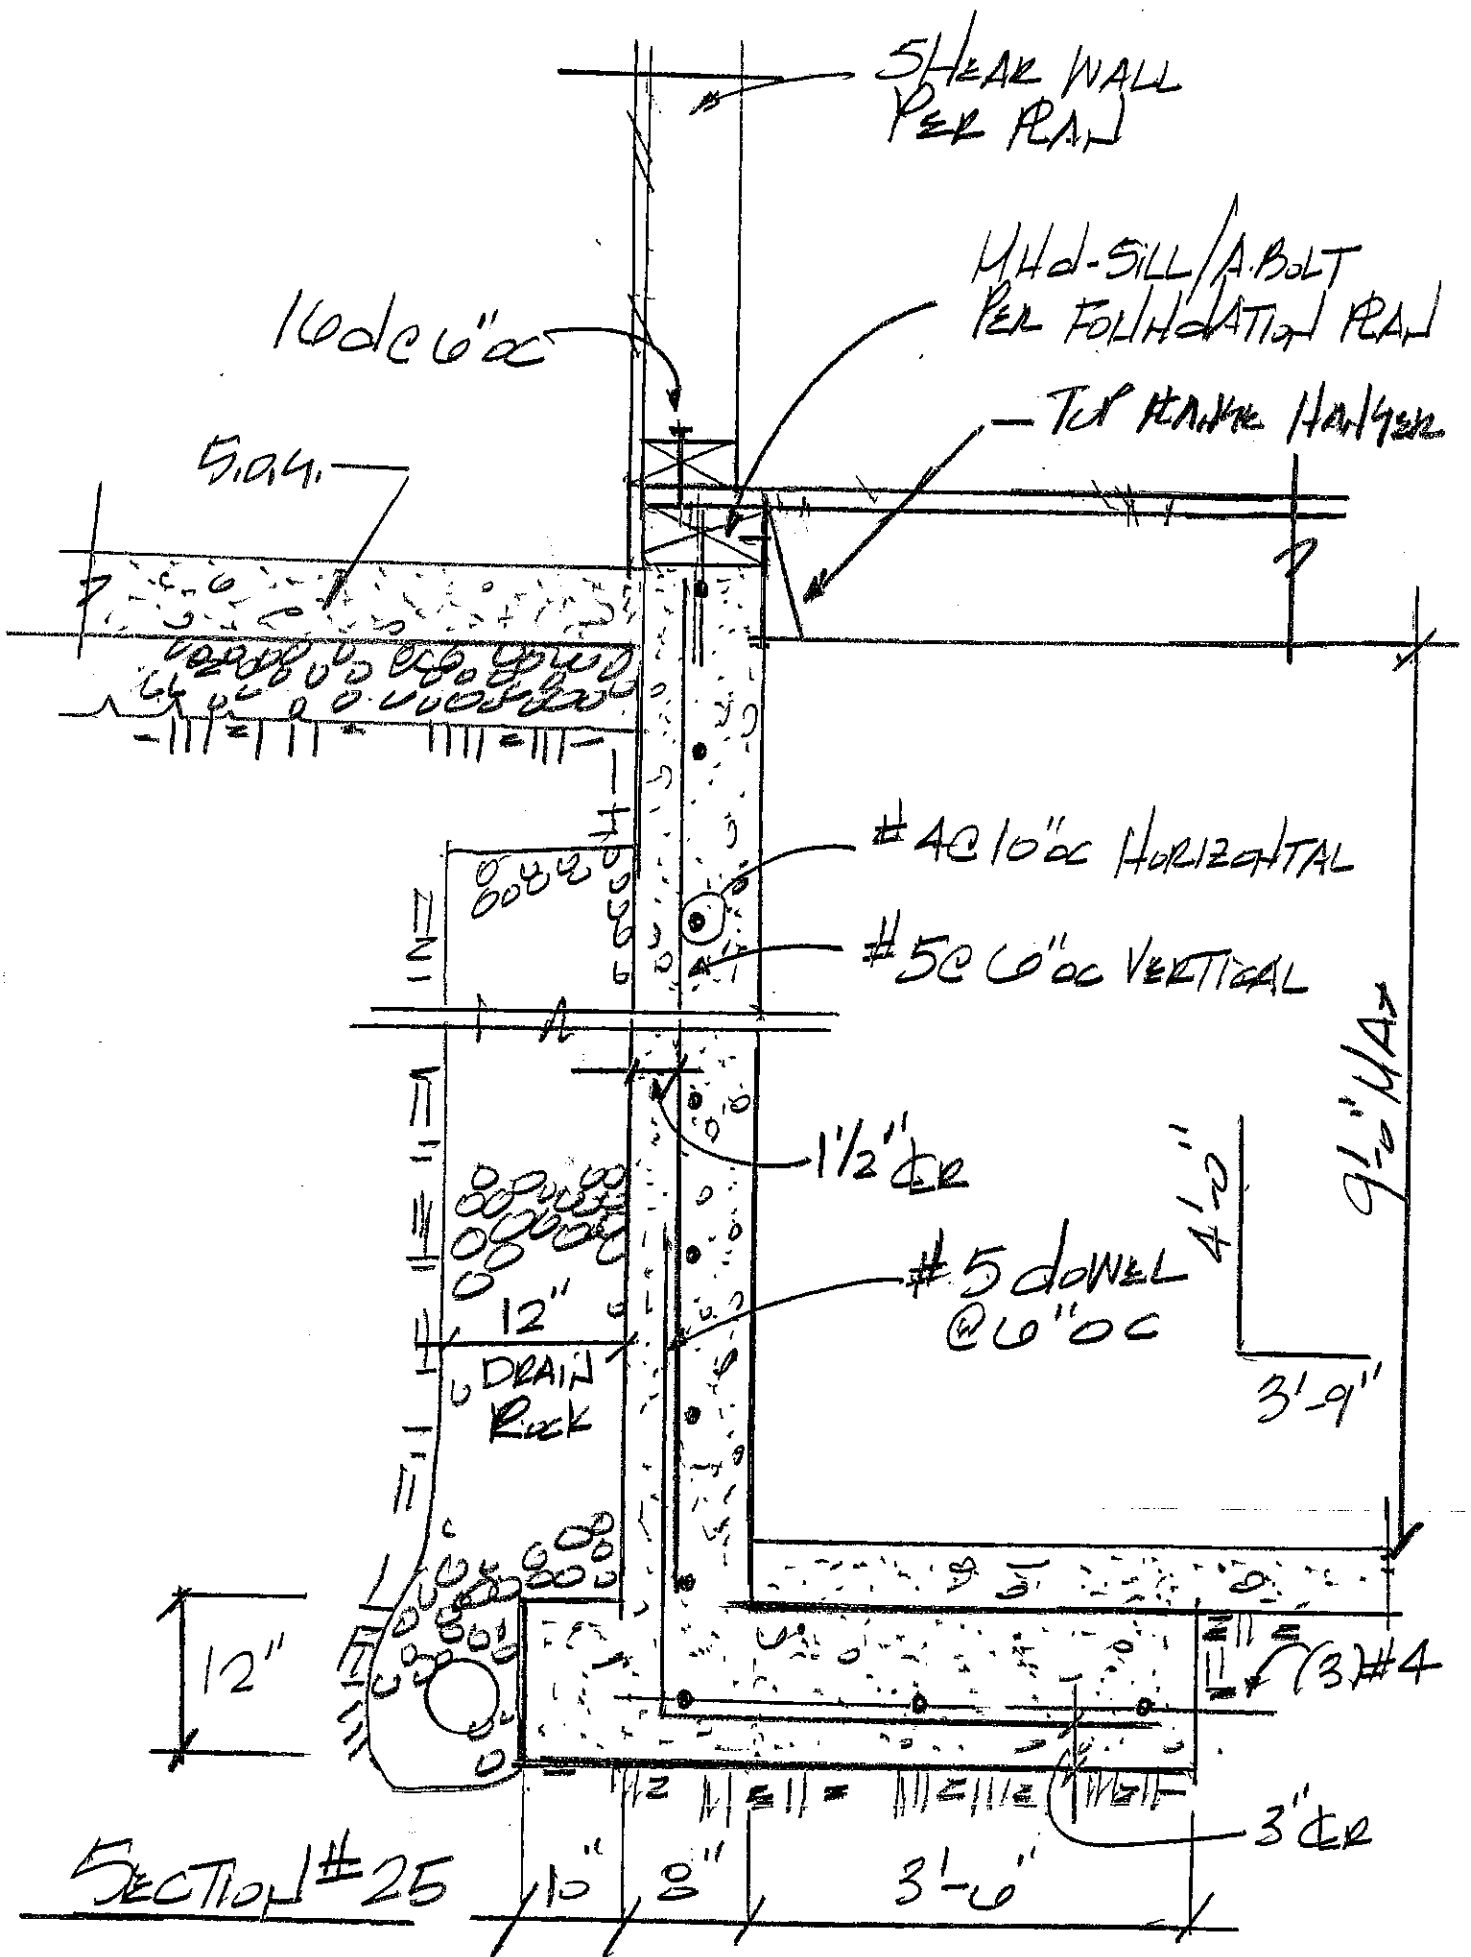 SHEAR WALL
PER PLAN
MUD-SILL/A.BOLT
PER FOUNDATION PLAN
16d@6"oc
TOP FLANGE HANGER
S.O.G.
#4@10"oc HORIZONTAL
#5@6"oc VERTICAL
9'-0" MAX
1½" CLR
4'-0"
#5 dOWEL
@6"OC
12"
DRAIN
ROCK
3'-9"
12"
(3)#4
3" CLR
SECTION #25
10"
8"
3'-6"